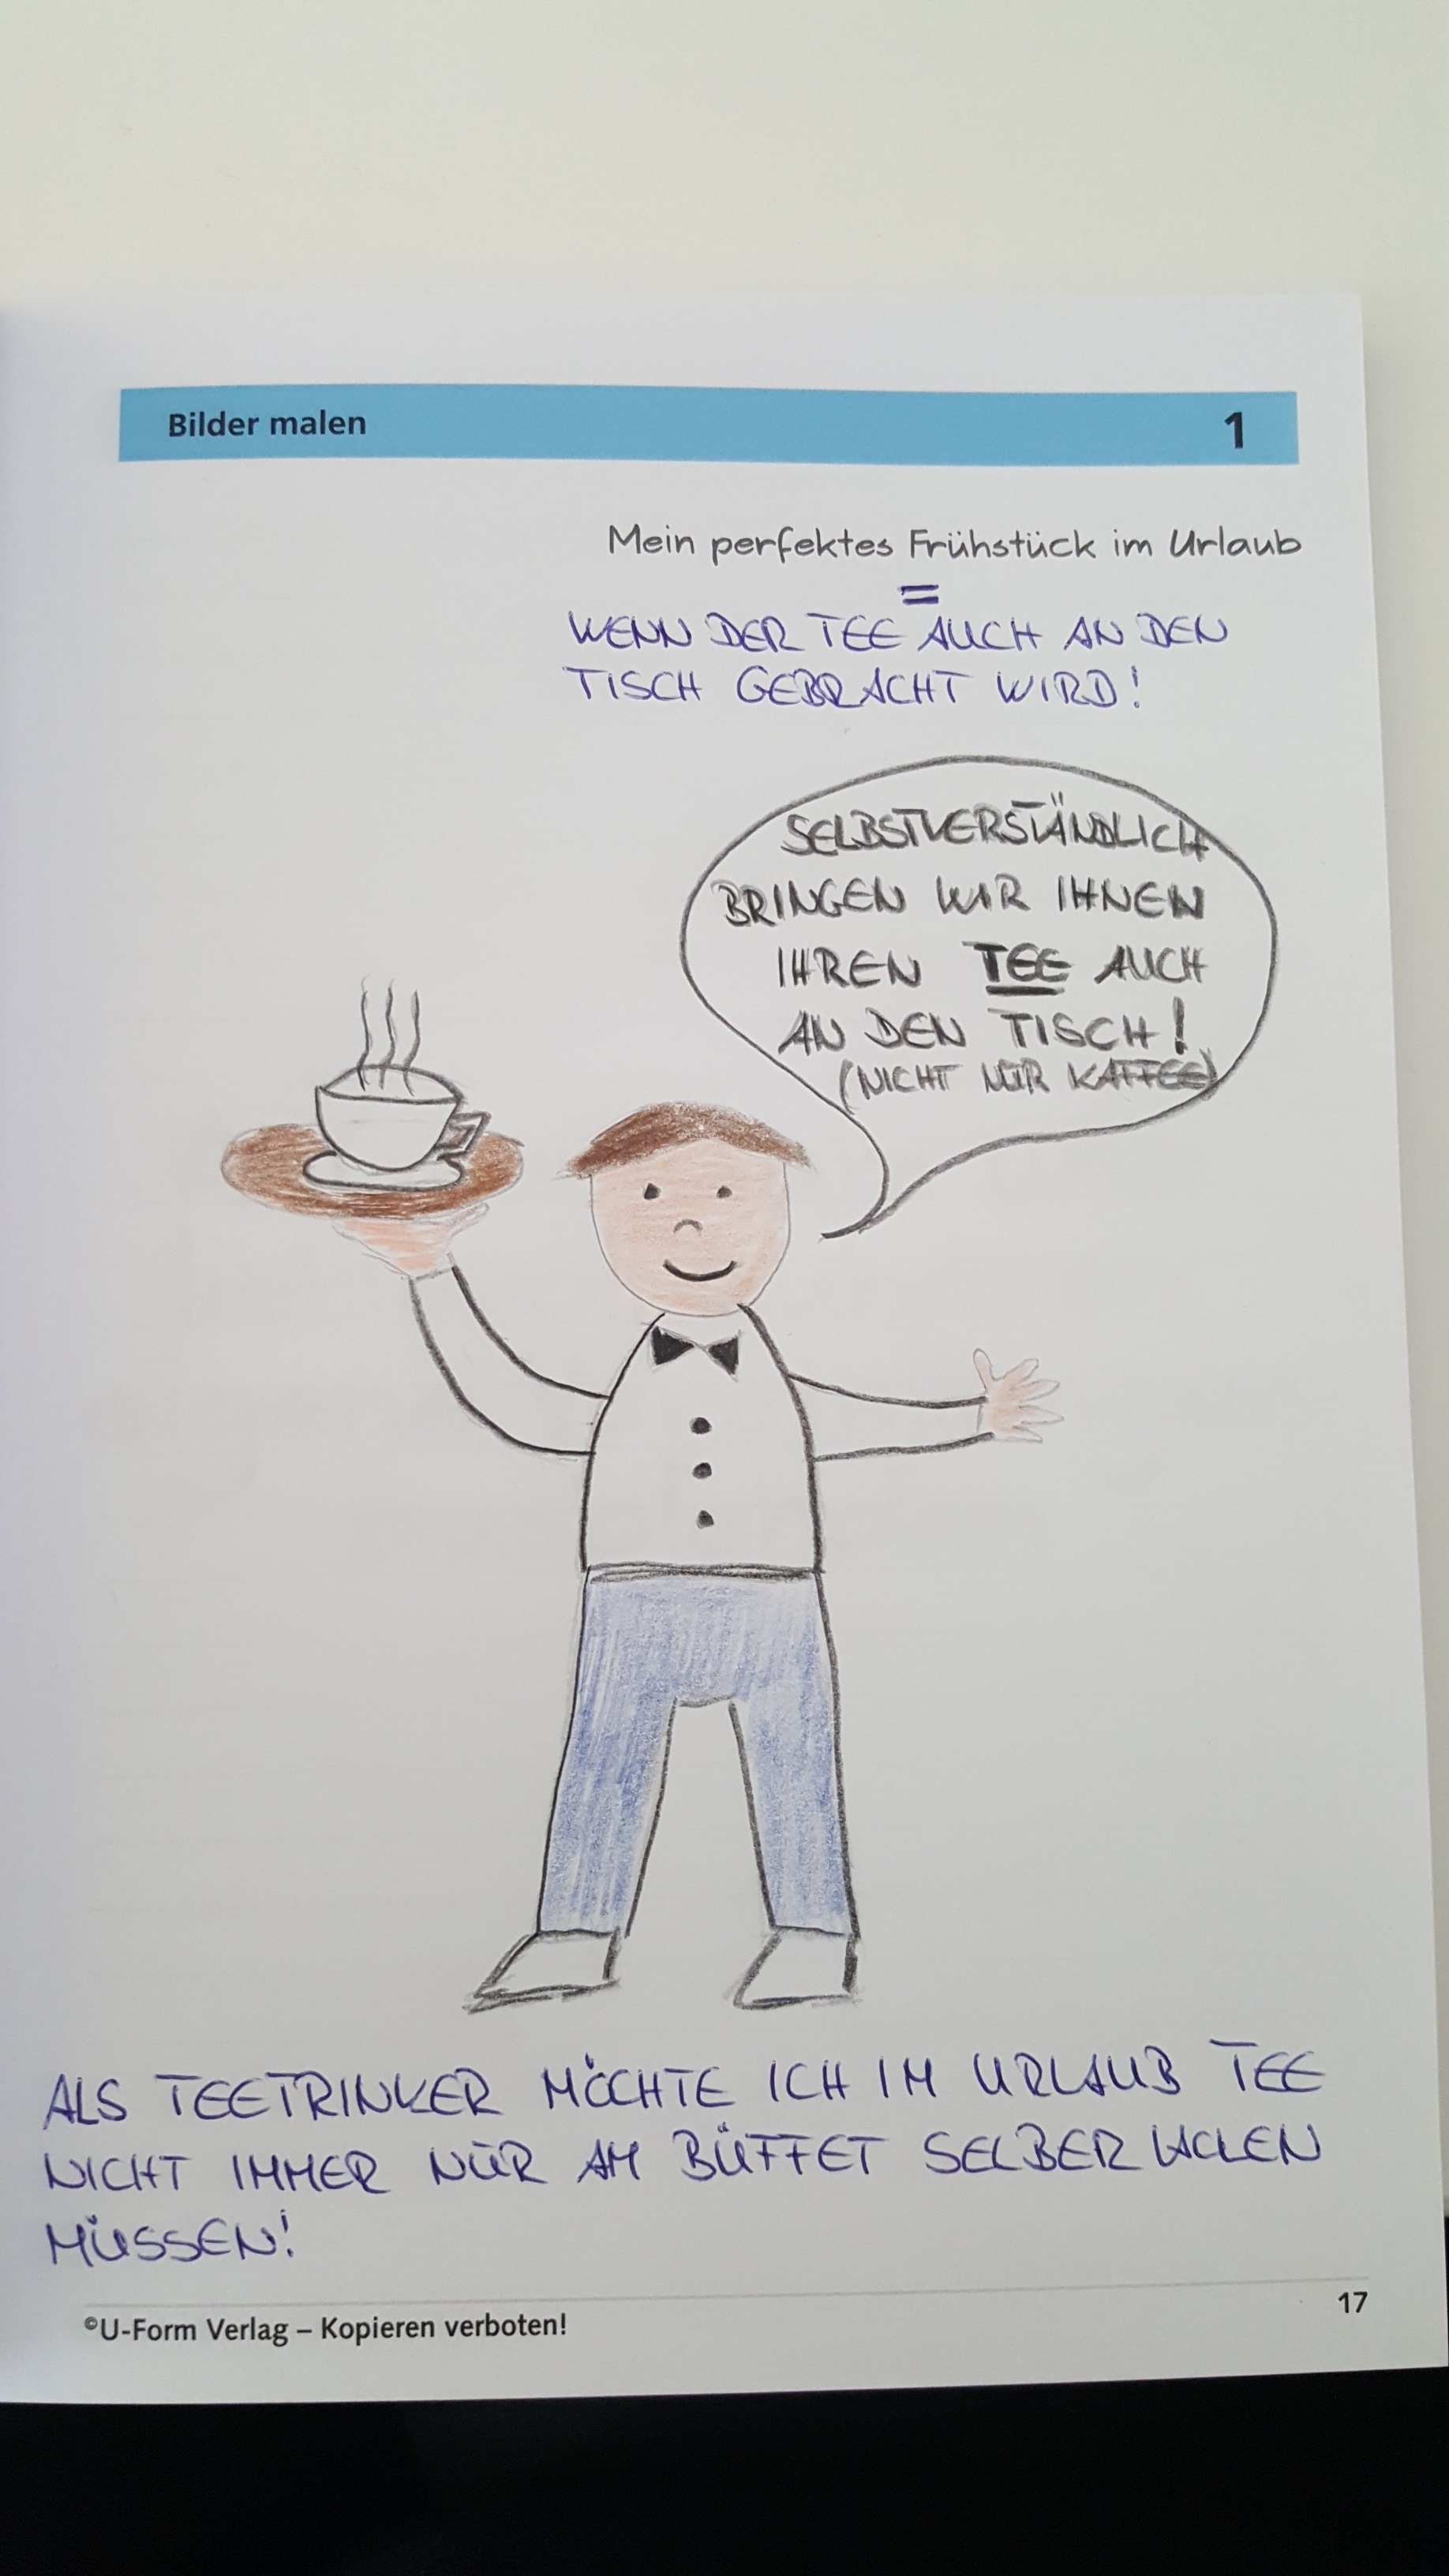 Bilder malen 1
Mein perfektes Frühstück im Urlaub
=
WENN DER TEE AUCH AN DEN
TISCH GEBRACHT WIRD!
SELBSTVERSTÄNDLICH
BRINGEN WIR IHNEN
IHREN TEE AUCH
AN DEN TISCH!
(NICHT NUR KAFFEE)
ALS TEETRINKER MÖCHTE ICH IM URLAUB TEE
NICHT IMMER NUR AM BÜFFET SELBER HOLEN
MÜSSEN!
©U-Form Verlag – Kopieren verboten!
17